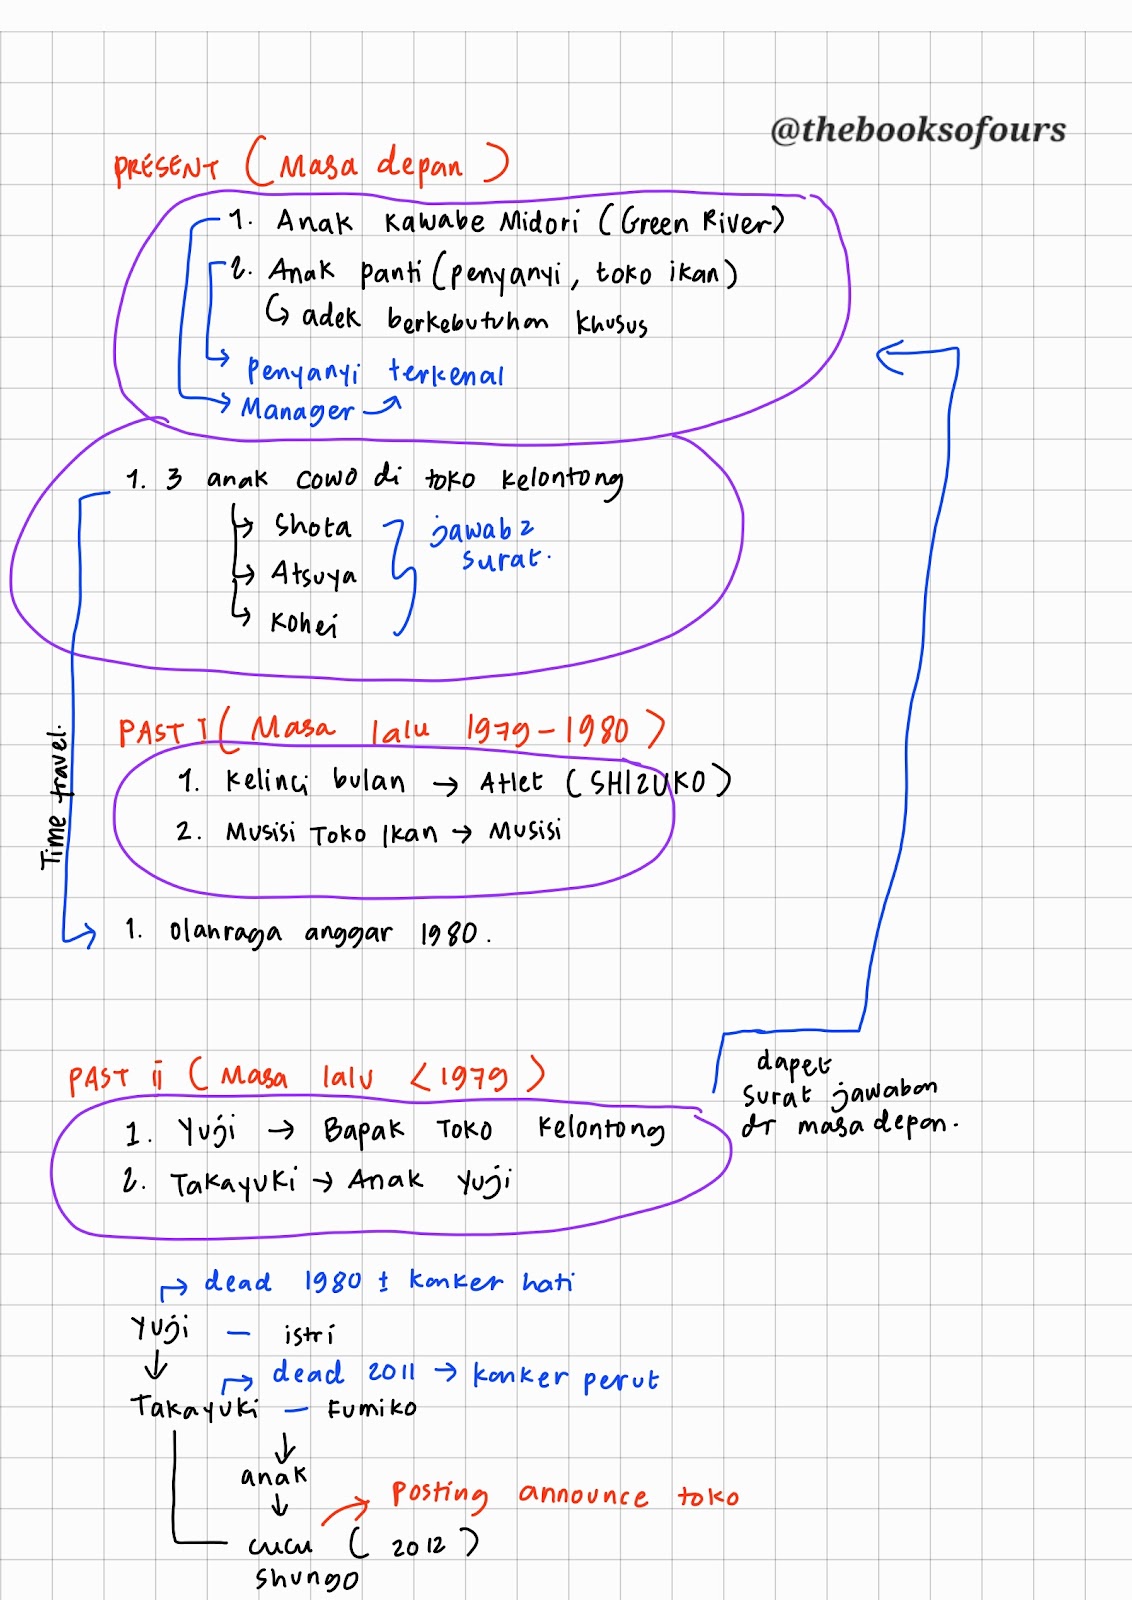 @thebooksofours
PRESENT ( Masa depan )
1. Anak Kawabe Midori (Green River)
2. Anak panti (penyanyi, toko ikan)
↳ adek berkebutuhan khusus
→ Penyanyi terkenal
→ Manager
1. 3 anak cowo di toko kelontong
→ Shota
→ Atsuya
→ Kohei
jawab2
surat.
Time travel.
PAST I ( Masa lalu 1979-1980 )
1. Kelinci bulan → Atlet (SHIZUKO)
2. Musisi Toko Ikan → Musisi
1. Olahraga anggar 1980.
PAST ii ( Masa lalu <1979 )
1. Yuji → Bapak Toko Kelontong
2. Takayuki → Anak Yuji
dapet
surat jawaban
dr masa depan.
→ dead 1980 ± kanker hati
Yuji — istri
→ dead 2011 → kanker perut
Takayuki — Fumiko
anak
→ Posting announce toko
cucu ( 2012 )
Shungo